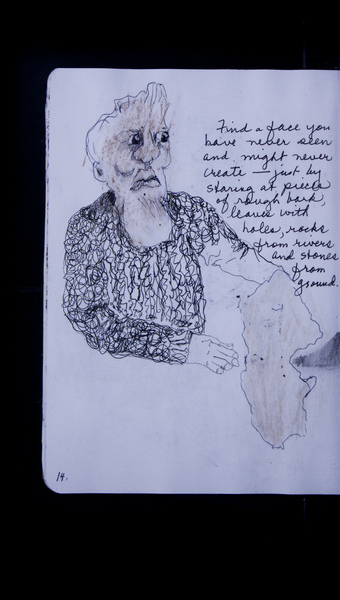 Find a face you
have never seen
and might never
create — just by
staring at pieces
of rough bark,
leaves with
holes, rocks
from rivers
and stones
from
ground.
14.